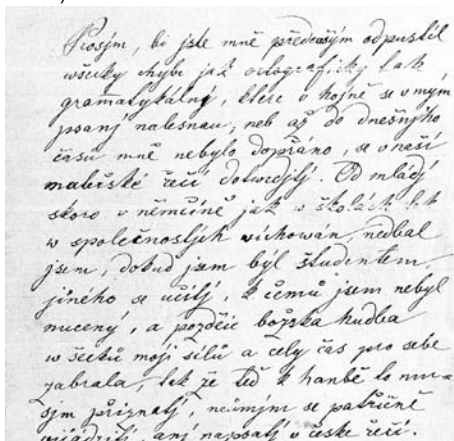 Prosým, bi jste mně předewším odpustil
wšecky chyby jak ortografický tak
gramatykálný, ktere v hojně se v mým
psaný nalesnau, neb až do dnešnýho
času mně nebylo dopřáno, se v naší
mateřské řečí dotwrdjtj. Od mládj
skoro v němčině jak v školách tak
w společnostjch wichowán, nedbal
jsem, dokud jsem býl študentem,
jiného se učitj, k čemů jsem nebyl
nucený, a pozdějc božska hudba
wšecků moji silů a cely čas pro sebe
zabrala, tak že teď k hanbě to mu-
sjm přiznatj, neůmjm se patřičně
anj napsatj v česke řečí.